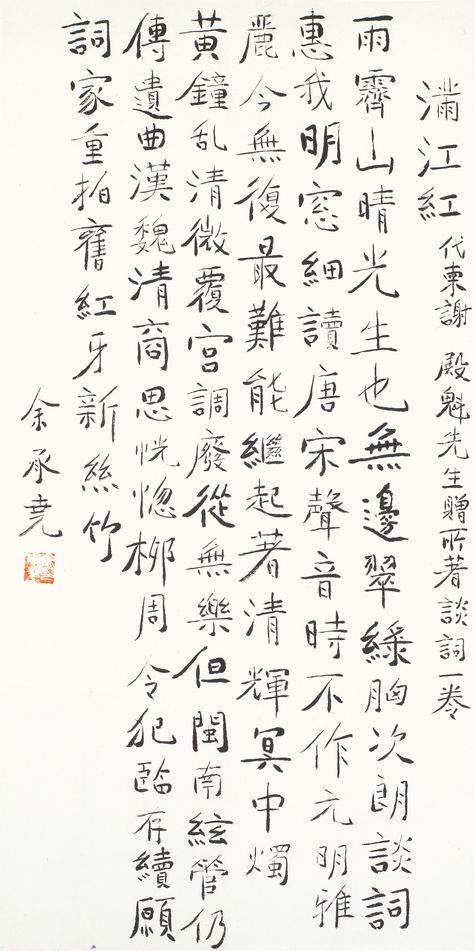 滿江紅 代柬謝 殿魁先生贈所著談詞一卷
雨霽山晴光生也無邊翠綠胸次朗談詞
惠我明窗細讀唐宋聲音時不作元明雅
麗今無復最難能繼起著清輝冥中燭
黃鐘乱清微覆宮調廢從無樂但閩南絃管仍
傳遺曲漢魏清商思恍惚柳周令犯臨存續願
詞家重拍舊紅牙新絲竹
余承堯